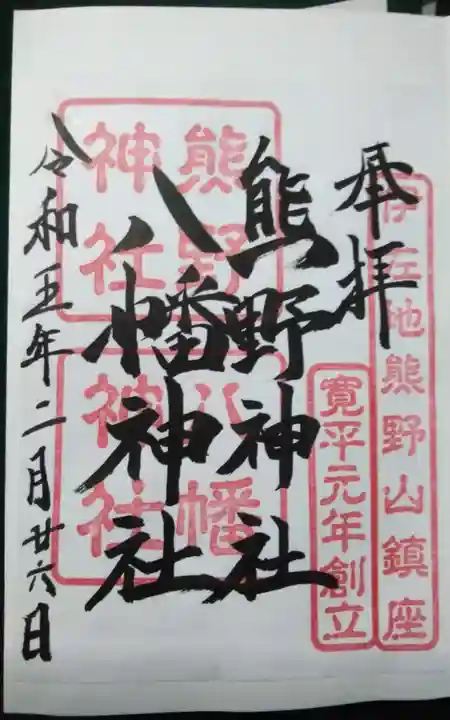 奉拝
伊左地熊野山鎮座
寛平元年創立
熊野神社
八幡神社
熊野
神社
八幡
神社
令和五年二月廿六日